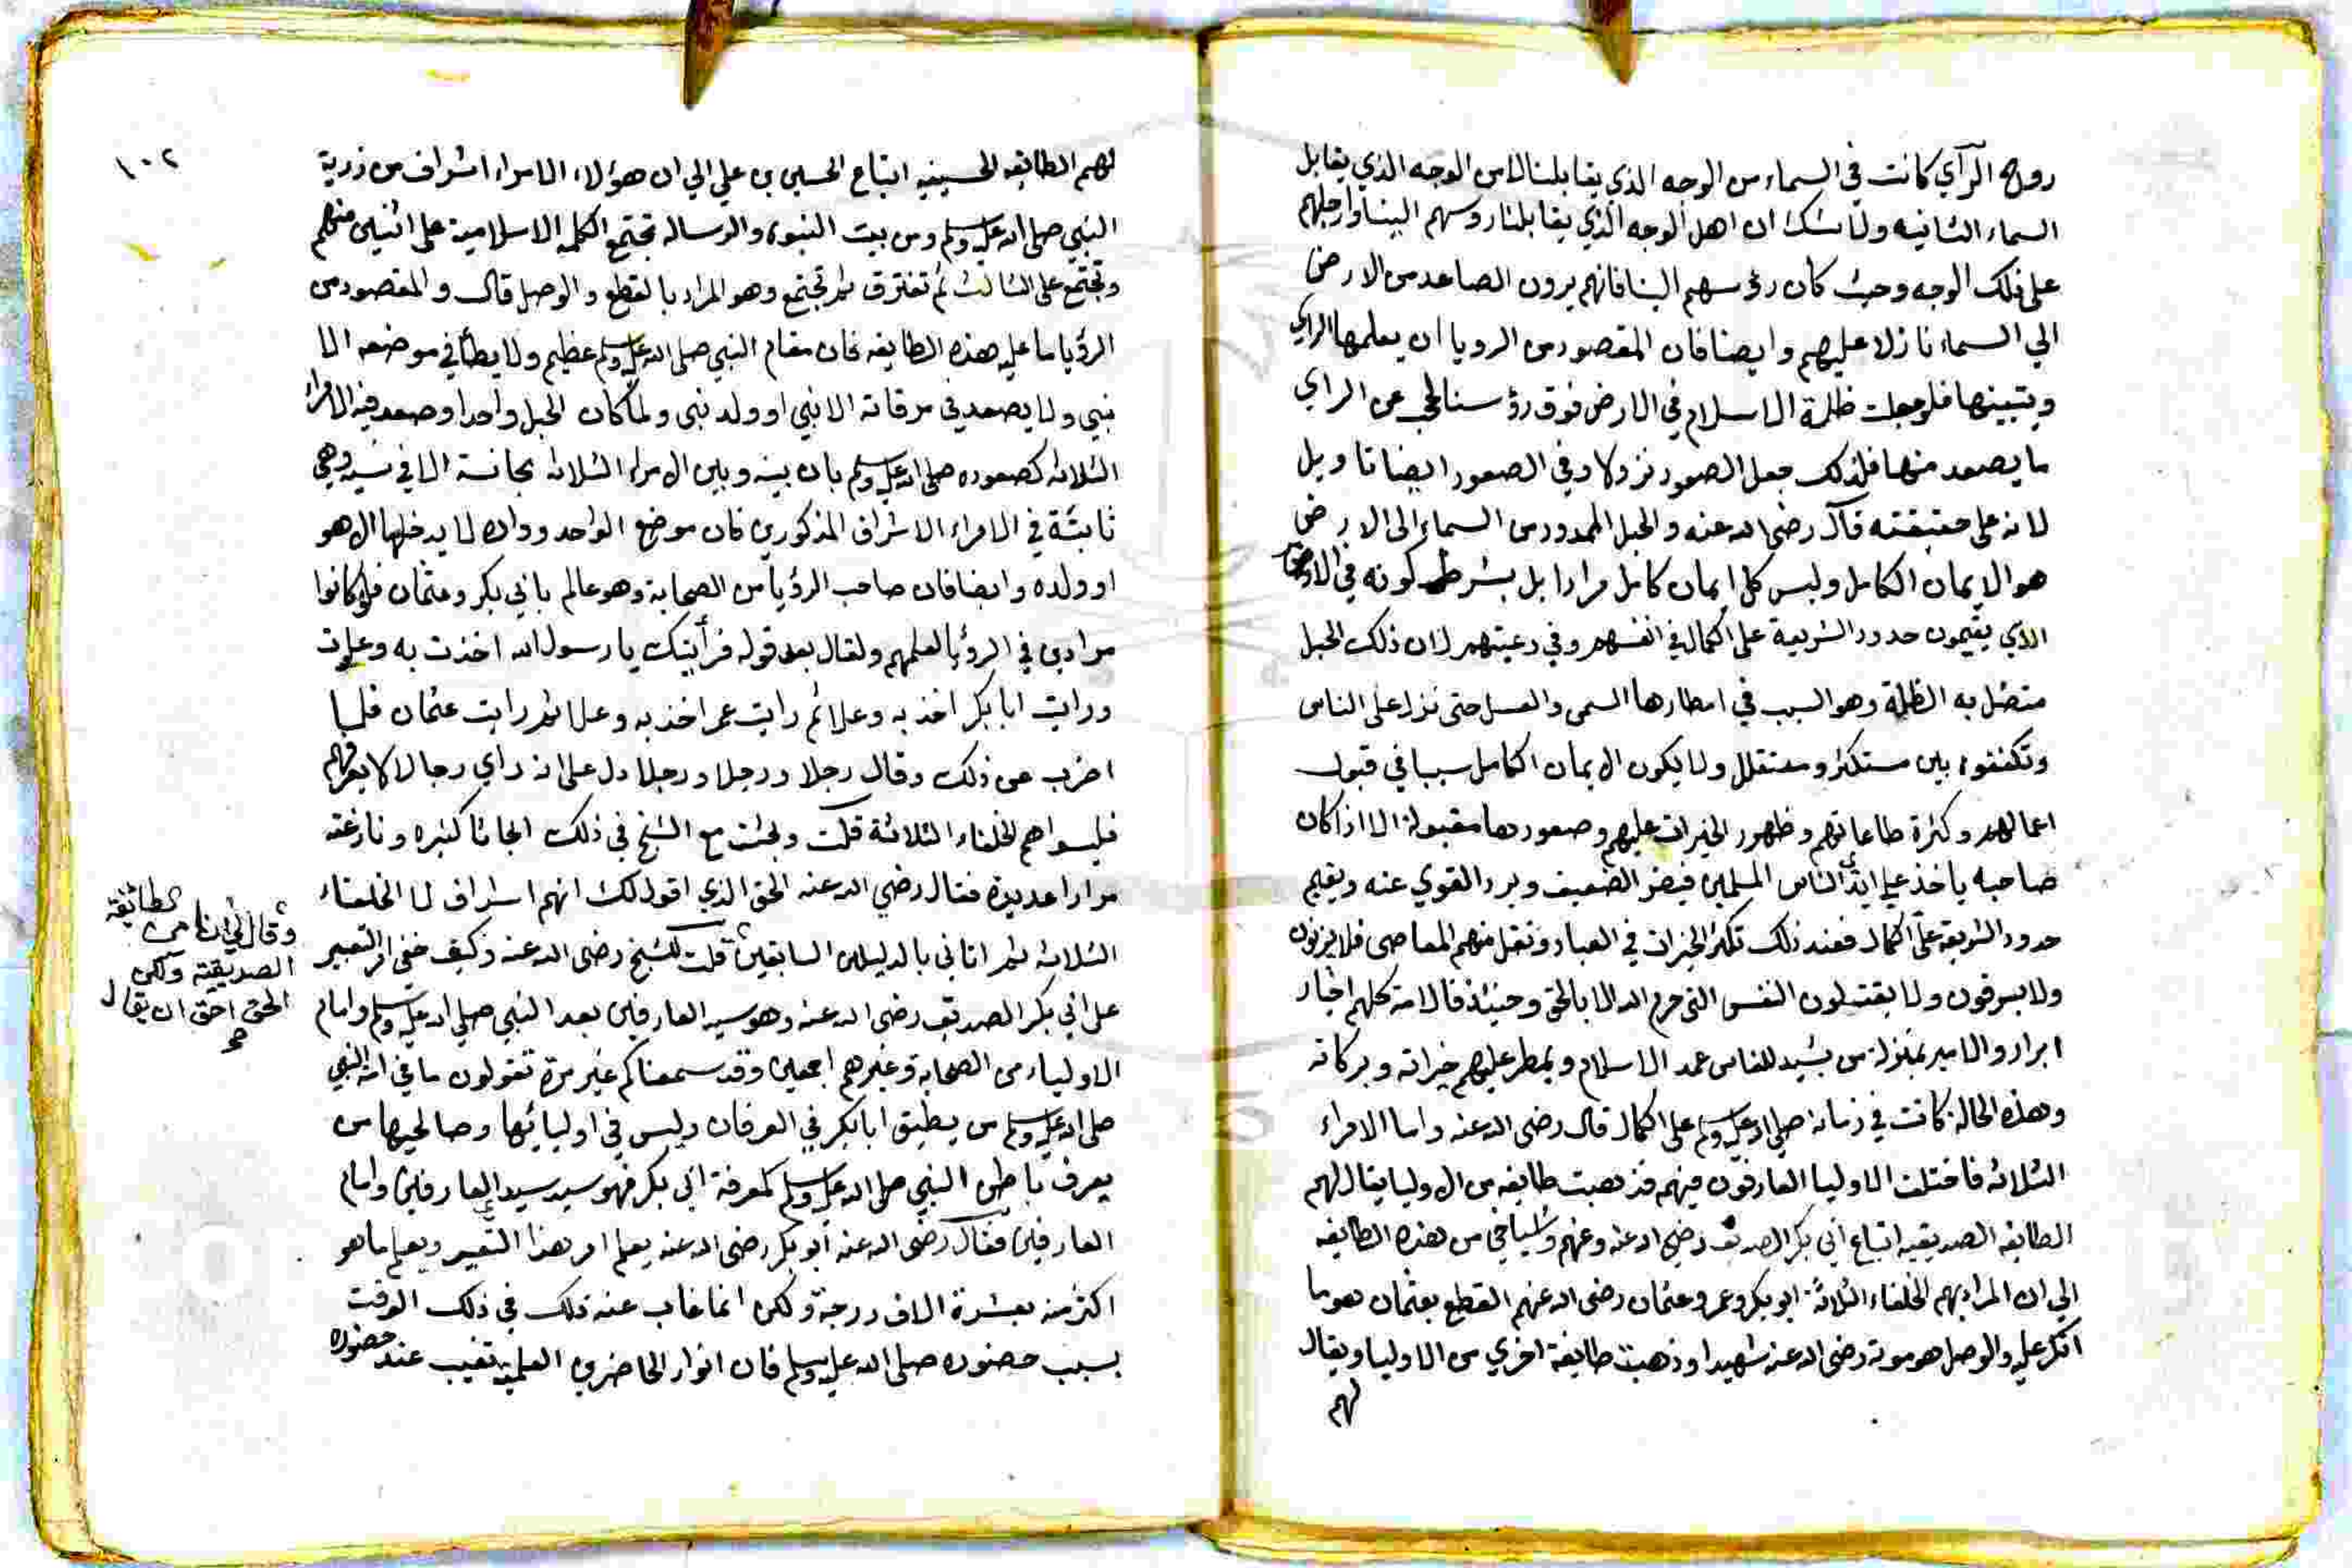 روح الرآي كانت في السماء من الوجه الذي يقابلنا لا من الوجه الذي يقابل
السماء الثانيه ولا شك ان اهل الوجه الذي يقابلنا روسهم الينا وارجلهم
على ذلك الوجه وحيث كان رؤسهم الينا فانهم يرون الصاعد من الارض
الي السماء نازلا عليهم وايضا فان المقصود من الرويا ان يعلمها الراي
ويتبينها فلو جعلت ظلمة الاسلام في الارض فوق رؤسنا لحجب عن الراي
ما يصعد منها فلذلك جعل الصعود نزولا وفي الصعود ايضا تاويل
لانه على حقيقته قال رضي الله عنه والحبل الممدود من السماء الى الارض
هو الايمان الكامل وليس كل ايمان كامل مرادا بل بشرط كونه في
الذي يقيمون حدود الشريعة على الكمال في انفسهم وفي رعيتهم لان ذلك الحبل
متصل به الظلة وهو السبب في امطارها السمن والعسل حتى نزل على الناس
وتكففوه بين مستكثر ومستقلل ولا يكون الايمان الكامل سببا في قبول
اعمالهم وكثرة طاعاتهم وظهور الخيرات عليهم وصعودها مقبولة الا اذا كان
صاحبه ياخذ على ايدي الناس المسلمين فينصر الضعيف ويرد القوي عنه ويقيم
حدود الشريعة على الكمال فعند ذلك تكثر الخيرات في العباد وتقل منهم المعاصي فلا يزنون
ولا يسرقون ولا يقتلون النفس التي حرم الله الا بالحق وحينئذ فالامة كلهم اخيار
ابرار والامير بمنزلة من يشيد للناس عمد الاسلام ويمطر عليهم خيراته وبركاته
وهذه الحالة كانت في زمانه صلى الله عليه وسلم على الكمال قال رضي الله عنه واما الامراء
الثلاثه فاختلف الاوليا العارفون فيهم فذهبت طايفه من الاوليا يقال لهم
الطايفه الصديقيه اتباع ابي بكر الصديق رضي الله عنه وعنهم واشياخي من هذه الطايفه
الي ان المراد بهم الخلفاء الثلاثة ابو بكر وعمر وعثمان رضي الله عنهم القطع بعثمان هو ما
انكر عليه والوصل هو موته رضي الله عنه شهيدا وذهبت طايفة اخري من الاوليا ويقال
لهم
١٠٢
لهم الطايفه الحسينيه اتباع الحسين بن علي الي ان هؤلاء الامراء اشراف من ذرية
النبي صلى الله عليه وسلم ومن بيت النبوه والرساله تجتمع الكلمه الاسلامية على اثنين منهم
وتجتمع على الثالث ثم تفترق ثم تجتمع وهو المراد بالقطع والوصل قال والمقصود من
الرؤيا ما عليه هذه الطايفه فان مقام النبي صلى الله عليه وسلم عظيم ولا يطأ في موضعه الا
نبي ولا يصعد في مرقاته الا نبي او ولد نبي ولما كان الحبل واحدا وصعد فيه الامراء
الثلاثه كصعوده صلى الله عليه وسلم بان بينه وبين الامراء الثلاثه مجانسة وهي
ثابتة في الامراء الاشراف المذكورين فان موضع الواحد وداره لا يدخلها الا هو
او ولده وايضا فان صاحب الرؤيا من الصحابة وهو عالم بابي بكر وعثمان فلو كانوا
مرادين في الرؤيا لعلمهم ولقال بعد قوله فرأيتك يا رسول الله اخذت به وعلوت
ورايت ابا بكر اخذ به وعلا ثم رايت عمر اخذ به وعلا ثم رايت عثمان فلما
اضرب عن ذلك وقال رجلا ورجلا ورجلا دل على انه راي رجالا لا يعرفهم
فليسوا هم الخلفاء الثلاثة قلت وبحثت مع الشيخ في ذلك ابحاثا كثيره ونازعته
مرارا عديدة فقال رضي الله عنه الحق الذي اقول لك انهم اشراف لا الخلفاء
الثلاثه ثم اتاني بالدليلين السابقين قلت للشيخ رضي الله عنه وكيف خفي امر التعبير
على ابي بكر الصديق رضي الله عنه وهو سيد العارفين بعد النبي صلى الله عليه وسلم وامام
الاولياء من الصحابة وغيرهم اجمعين وقد سمعناكم غير مرة تقولون ما في امة النبي
صلى الله عليه وسلم من يطيق ابا بكر في العرفان وليس في اوليائها وصالحيها من
يعرف باطن النبي صلى الله عليه وسلم كمعرفة ابي بكر فهو سيد سيد العارفين وامام
العارفين فقال رضي الله عنه ابو بكر رضي الله عنه يعلم امر هذا التعبير ويعلم ما هو
اكثر منه بعشرة الاف درجة ولكن انما غاب عنه ذلك في ذلك الوقت
بسبب حضوره صلى الله عليه وسلم فان انوار الحاضرين العلميه تغيب عند حضوره
وقال لي انا من الطائفة
الصديقية ولكن
الحق احق ان يقال